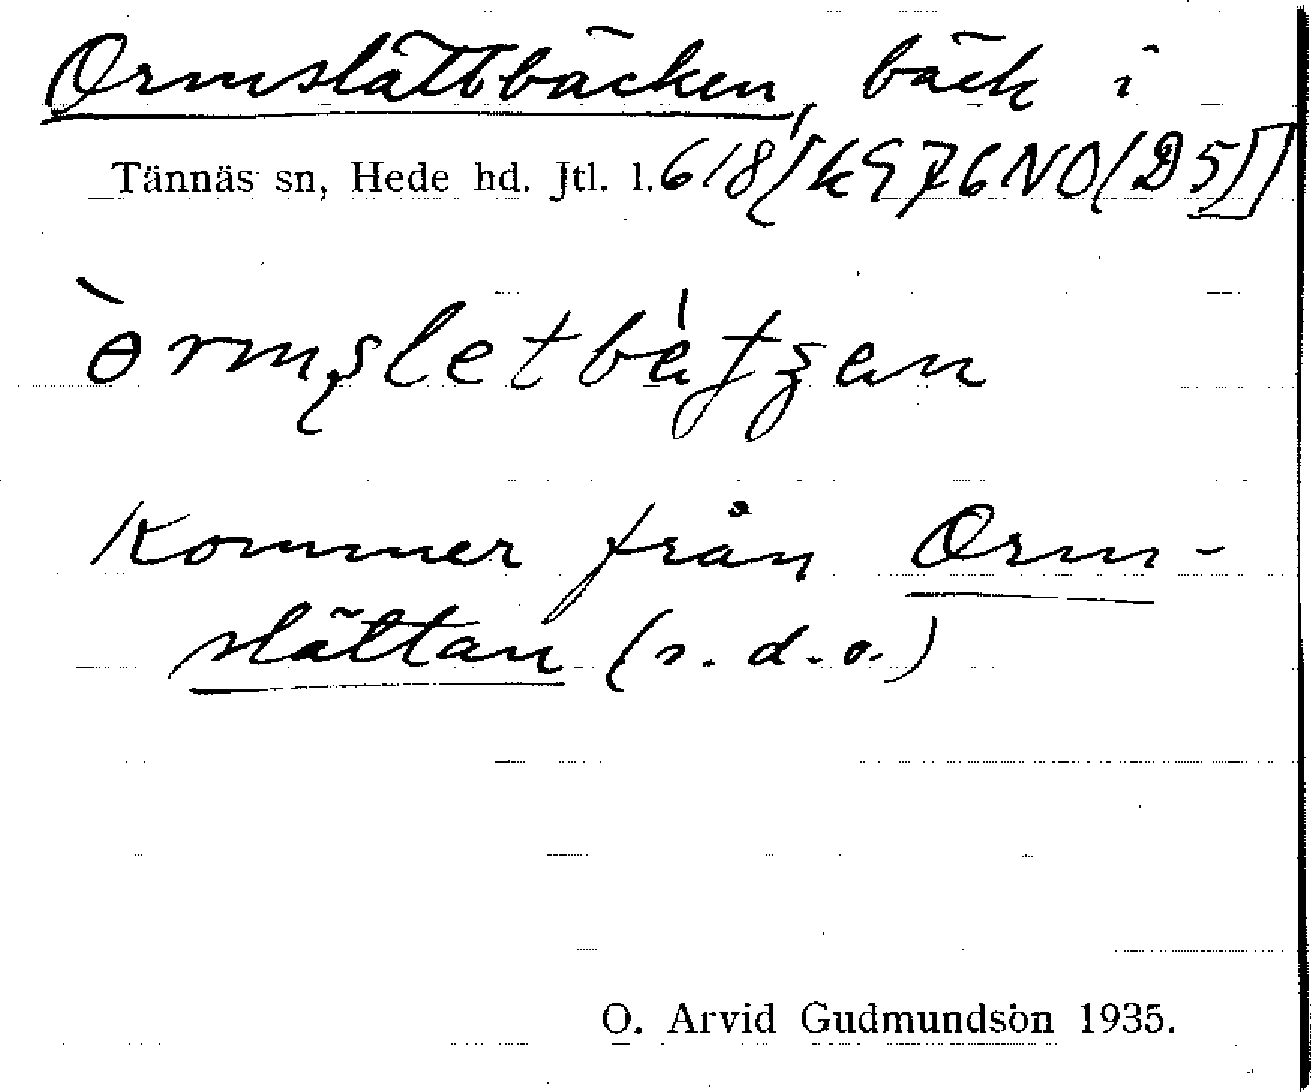 Ormslättbäcken, bäck i
Tännäs sn, Hede hd. Jtl. l. 618 [k976NO(D5)]
Kommer från Orm-
slättan (s.d.o.)
O. Arvid Gudmundson 1935.